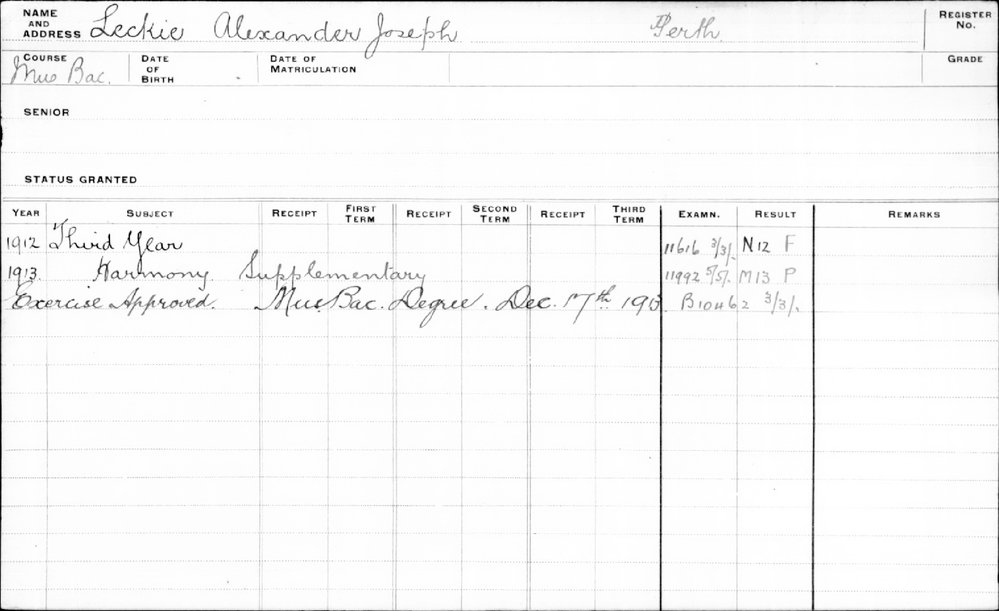 NAME AND ADDRESS Leckie Alexander Joseph Perth REGISTER No.
COURSE Mus Bac. DATE OF BIRTH DATE OF MATRICULATION GRADE
SENIOR
STATUS GRANTED
YEAR SUBJECT RECEIPT FIRST TERM RECEIPT SECOND TERM RECEIPT THIRD TERM EXAMN. RESULT REMARKS
1912 Third Year 11616 3/3/. N12 F
1913. Harmony. Supplementary 11992 5/5/. M13 P
Exercise Approved. Mus. Bac. Degree. Dec. 17th 1913. B10462 3/3/.